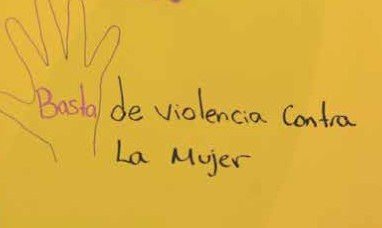 Basta de violencia Contra
La Mujer